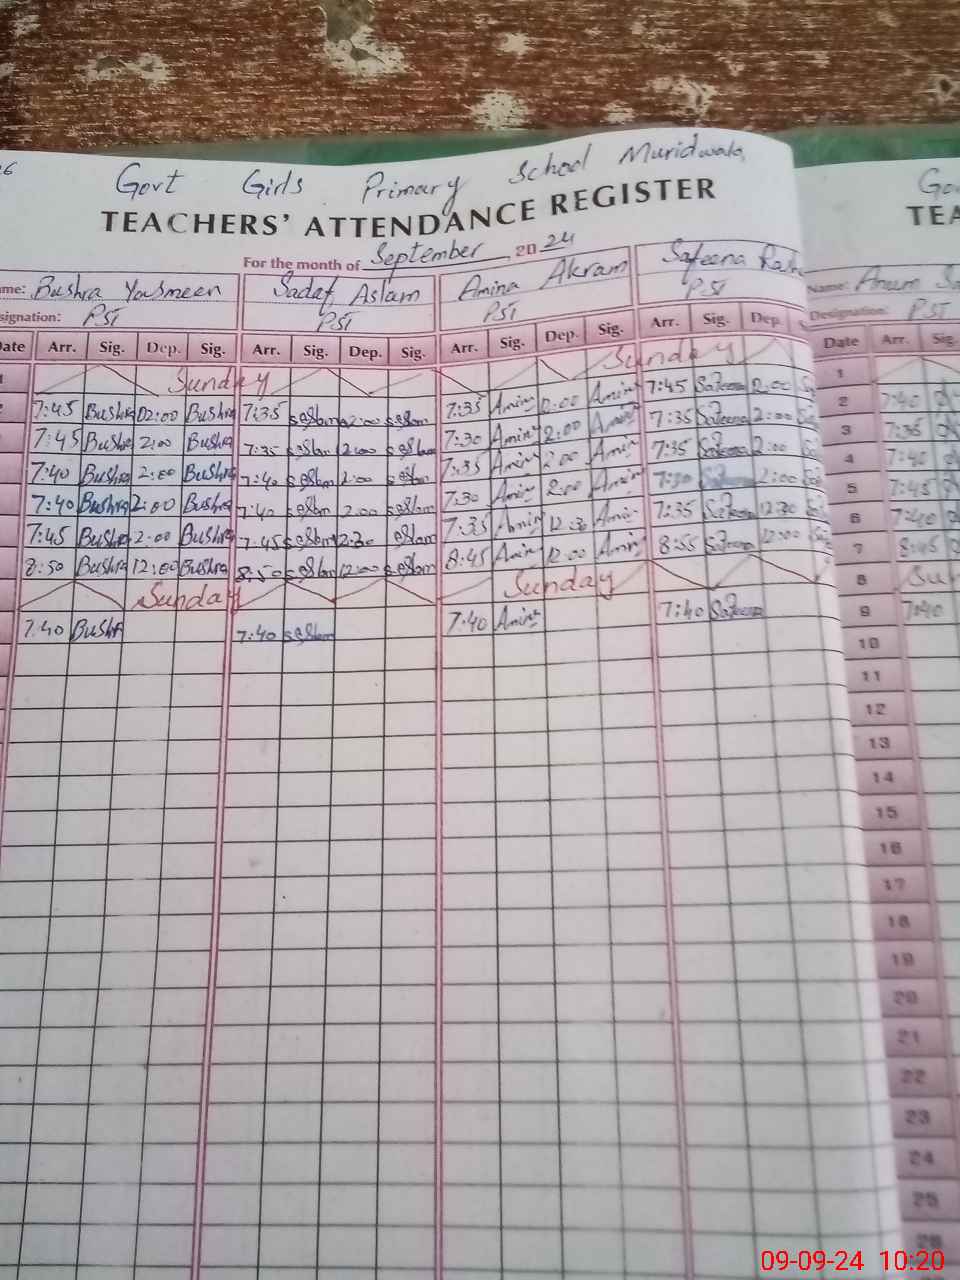 Govt Girls Primary School Muridwala
TEACHERS' ATTENDANCE REGISTER
TEA
For the month of September, 2024
me: Bushra Yousmeen Sadaf Aslam Amina Akram Safeena
Name: Anum
signation: PST PST PST PST
Designation: PST
Date Arr. Sig. Dep. Sig. Arr. Sig. Dep. Sig. Arr. Sig. Dep. Sig. Arr. Sig. Dep. S
Date Arr. Sig.
1 Sunday Sunday 1
7:45 Bushra 02:00 Bushra 7:35 2:00 7:35 Amina 2:00 Amina 7:45 Safeena 2:00 2 7:40
7:45 Bushra 2:00 Bushra 7:35 2:00 7:30 Amina 2:00 Amina 7:35 Safeena 2:00 3 7:35
7:40 Bushra 2:00 Bushra 7:40 2:00 7:35 Amina 2:00 Amina 7:35 Safeena 2:00 4 7:40
7:40 Bushra 2:00 Bushra 7:40 2:00 7:30 Amina 2:00 Amina 7:30 2:00 5 7:45
7:45 Bushra 2:00 Bushra 7:45 7:35 Amina 12:30 Amina 7:35 Safeena 12:30 6 7:40
8:50 Bushra 12:00 Bushra 8:50 12:00 8:45 Amina 12:00 Amina 8:55 Safeena 12:00 7 8:45
Sunday Sunday 8 Sun
7:40 Bushra 7:40 7:40 Amina 7:40 Safeena 9 7:40
10
11
12
13
14
15
16
17
18
19
20
21
22
23
24
25
26
09-09-24 10:20